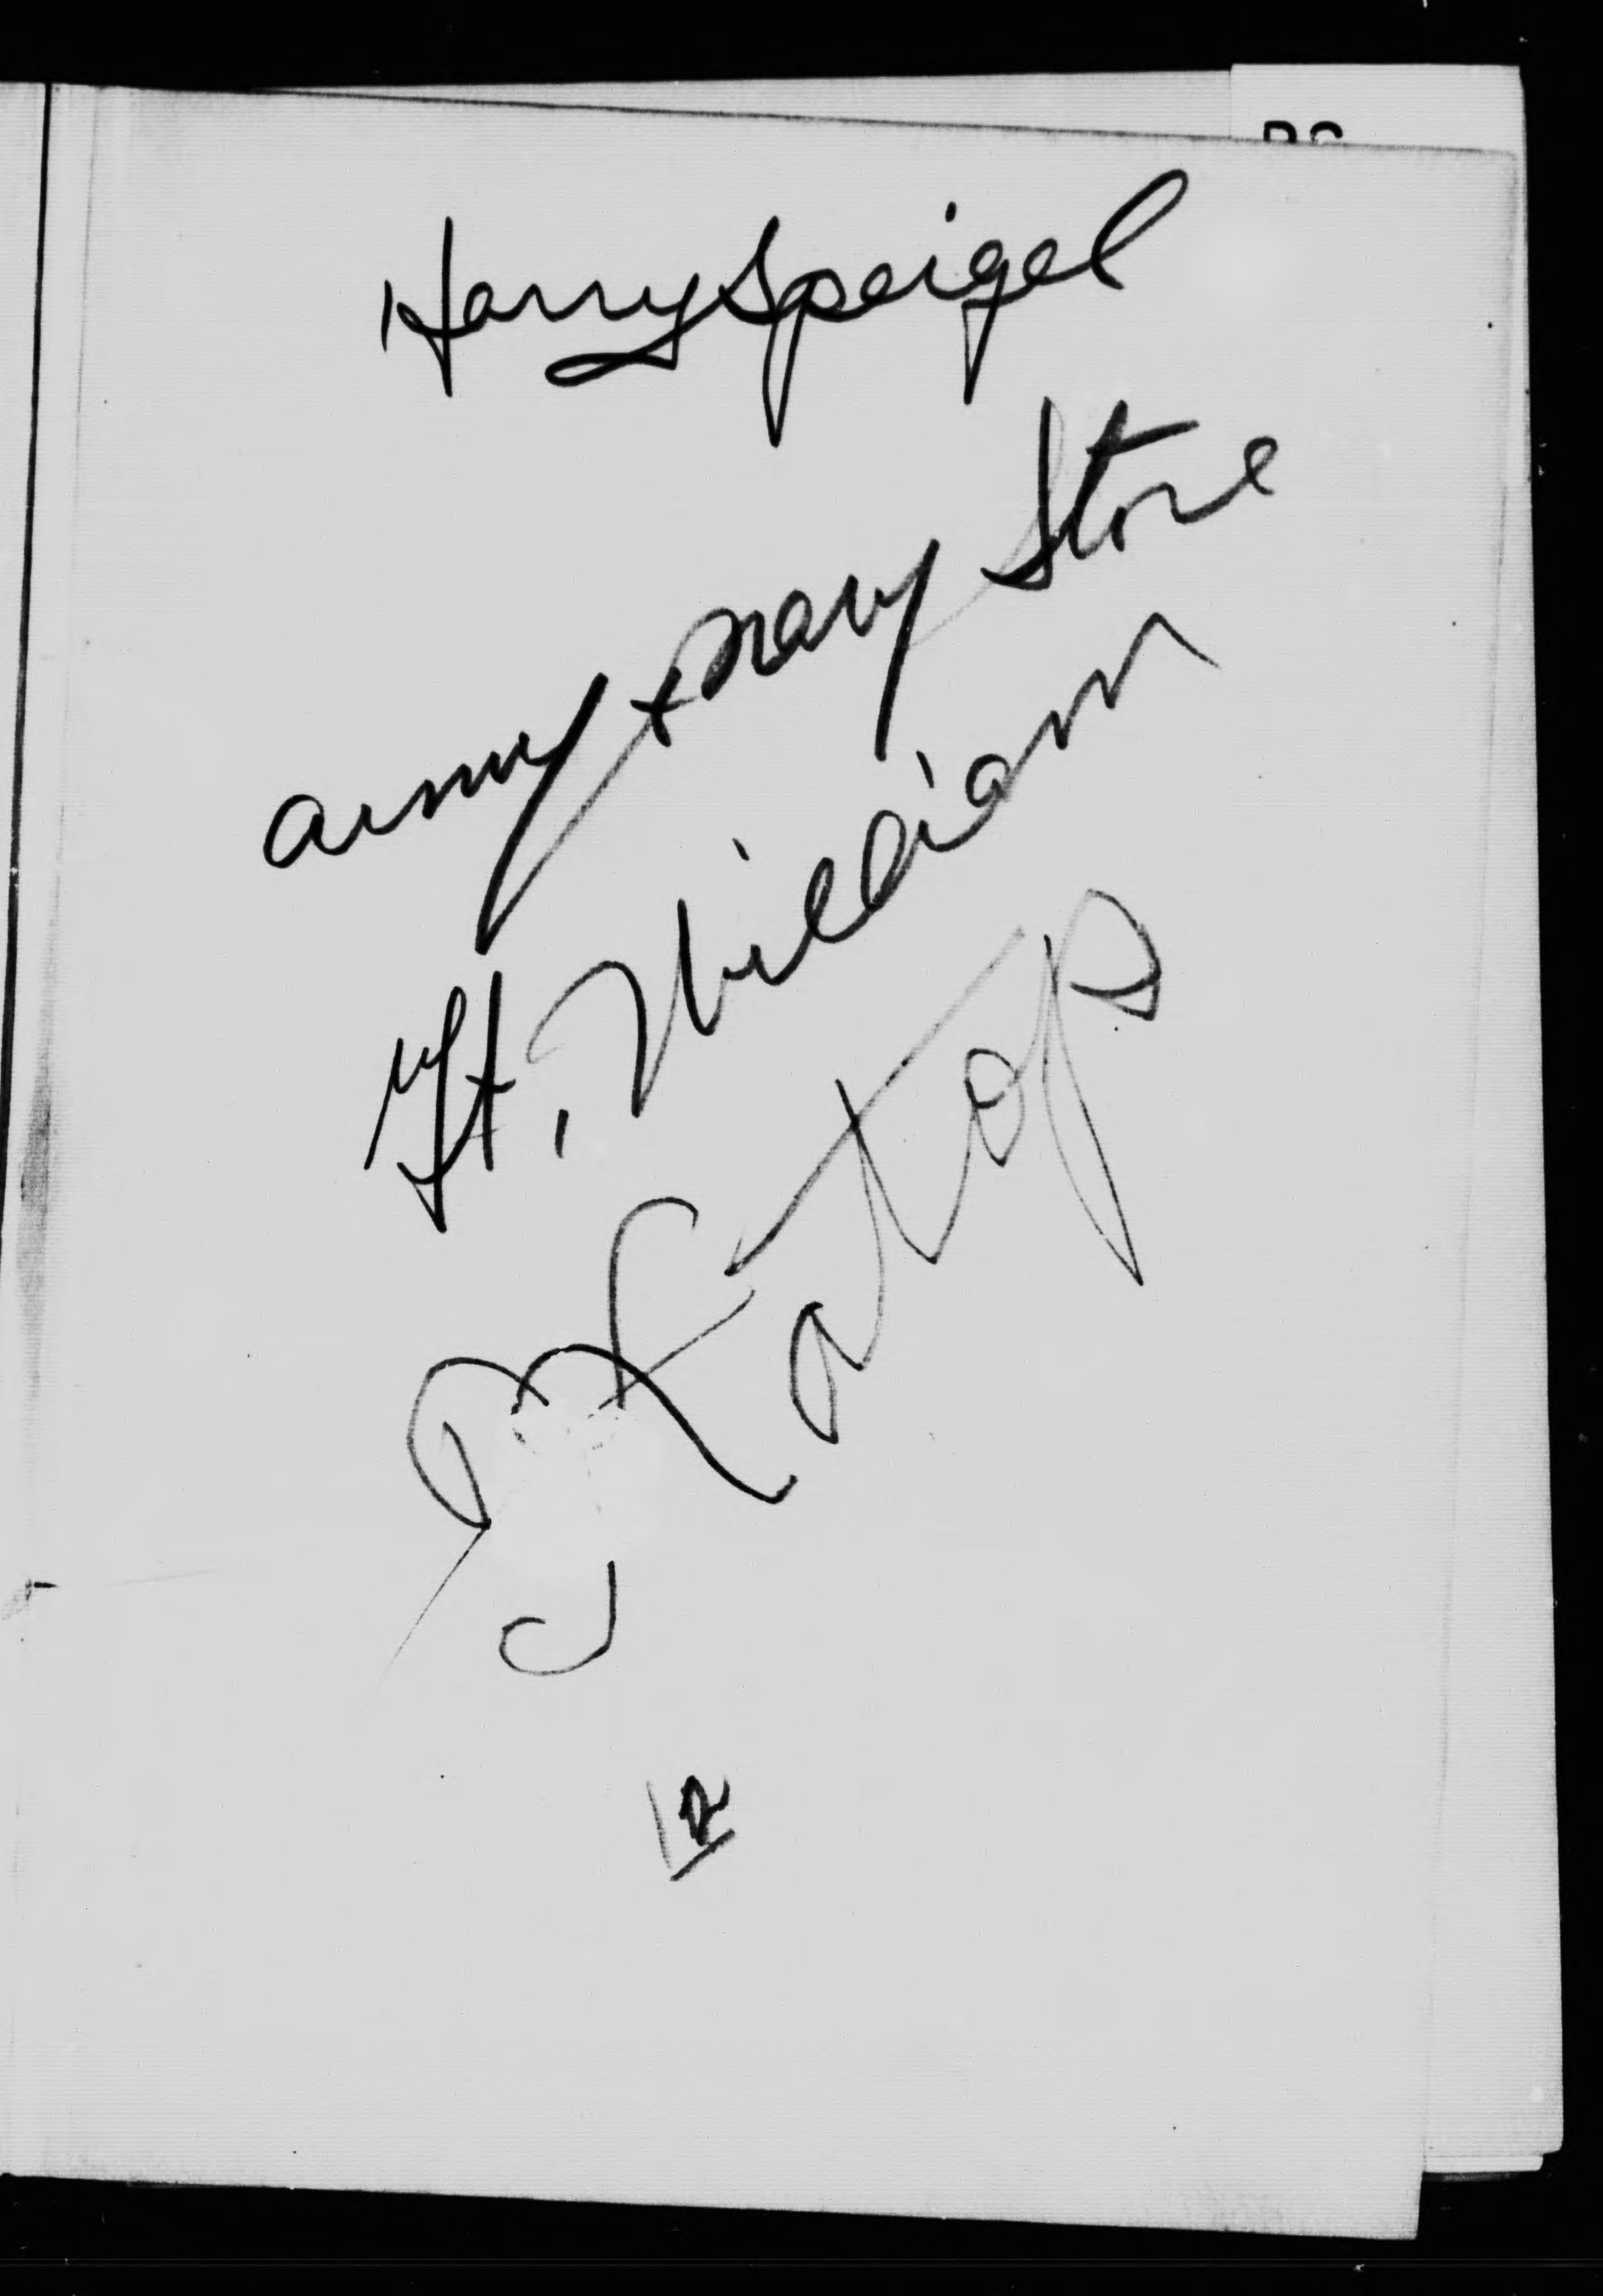 Harry Speigel
army + navy Store
Ft. William
12